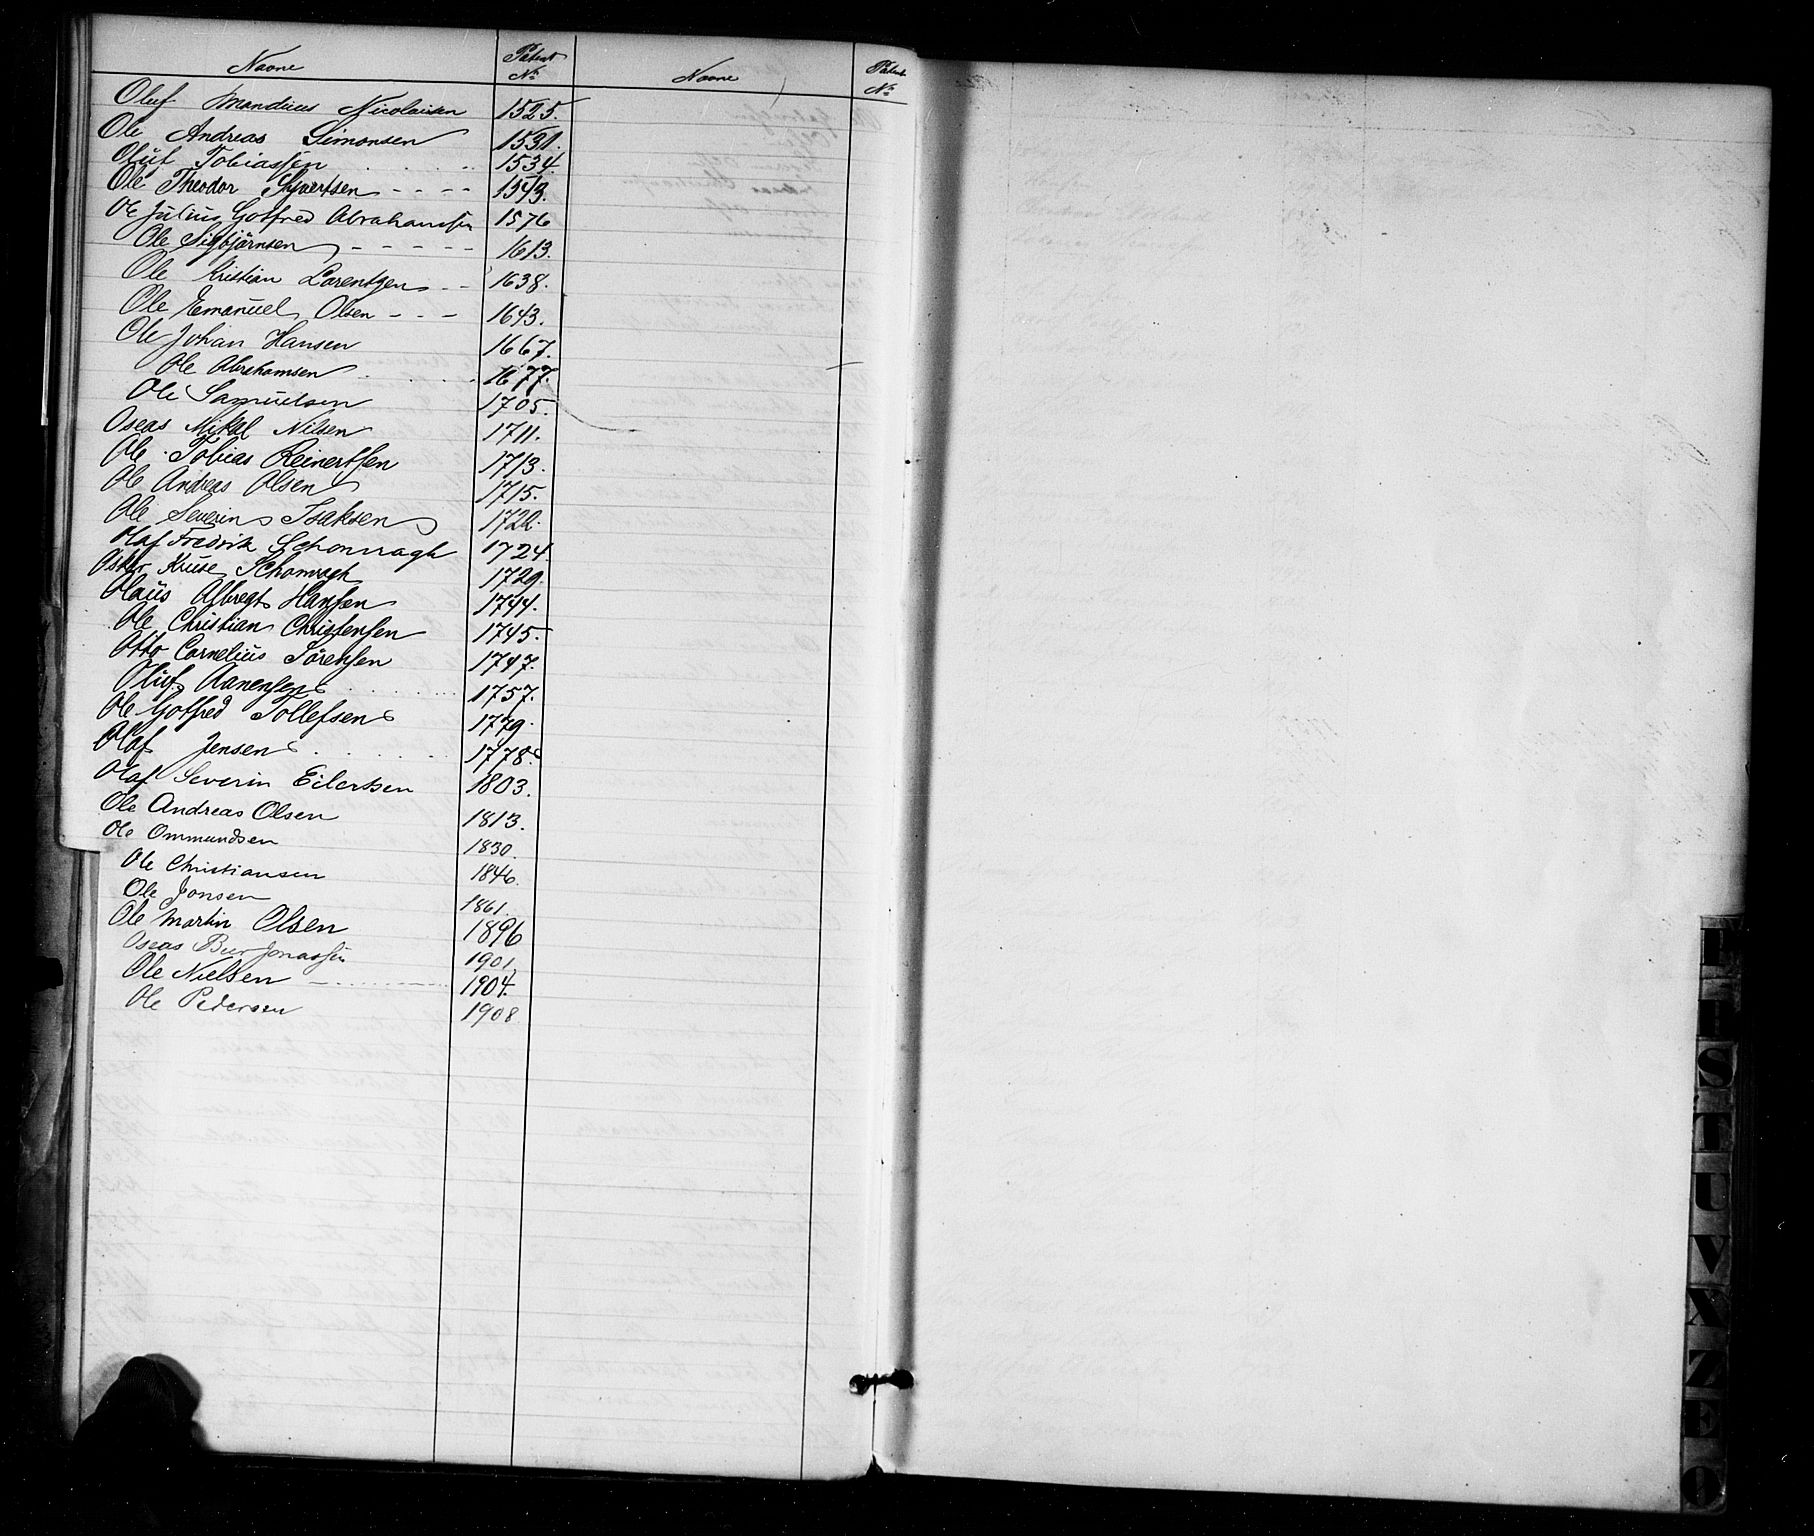 Navne Patent Navne Patent
No No
Oluf Mandius Nicolaisen 1525.
Ole Andreas Simonsen 1531.
Oluf Tobiassen 1534.
Ole Theodor Syvertsen - - - - 1543.
Ole Julius Gotfred Abrahamsen 1576
Ole Sigbjörnsen - - - - - 1613.
Ole Kristian Lorentzen - - 1638.
Ole Emanuel Olsen - - - 1643.
Ole Johan Hansen 1667.
Ole Abrahamsen 1677.
Ole Samuelsen 1705.
Oseas Mikal Nilsen 1711.
Ole Tobias Reinertsen 1713.
Ole Andreas Olsen 1715.
Ole Severin Isaksen 1722.
Olaf Fredrik Schonvagh 1724.
Oskar Kruse Schonvagh 1729.
Olaüs Albregt Hansen 1744.
Ole Christian Christensen 1745.
Otto Cornelius Sörensen 1747.
Oluf Aanensen 1757.
Ole Gotfred Tollefsen 1779.
Olaf Jensen 1778.
Olaf Severin Eilertsen 1803.
Ole Andreas Olsen 1813.
Ole Ommundsen 1830.
Ole Christiansen 1846.
Ole Jonsen 1861.
Ole Martin Olsen 1896
Oseas Jonassen 1901.
Ole Nielsen 1904.
Ole Pedersen 1908
S
T
U
V
X
Z
Ö